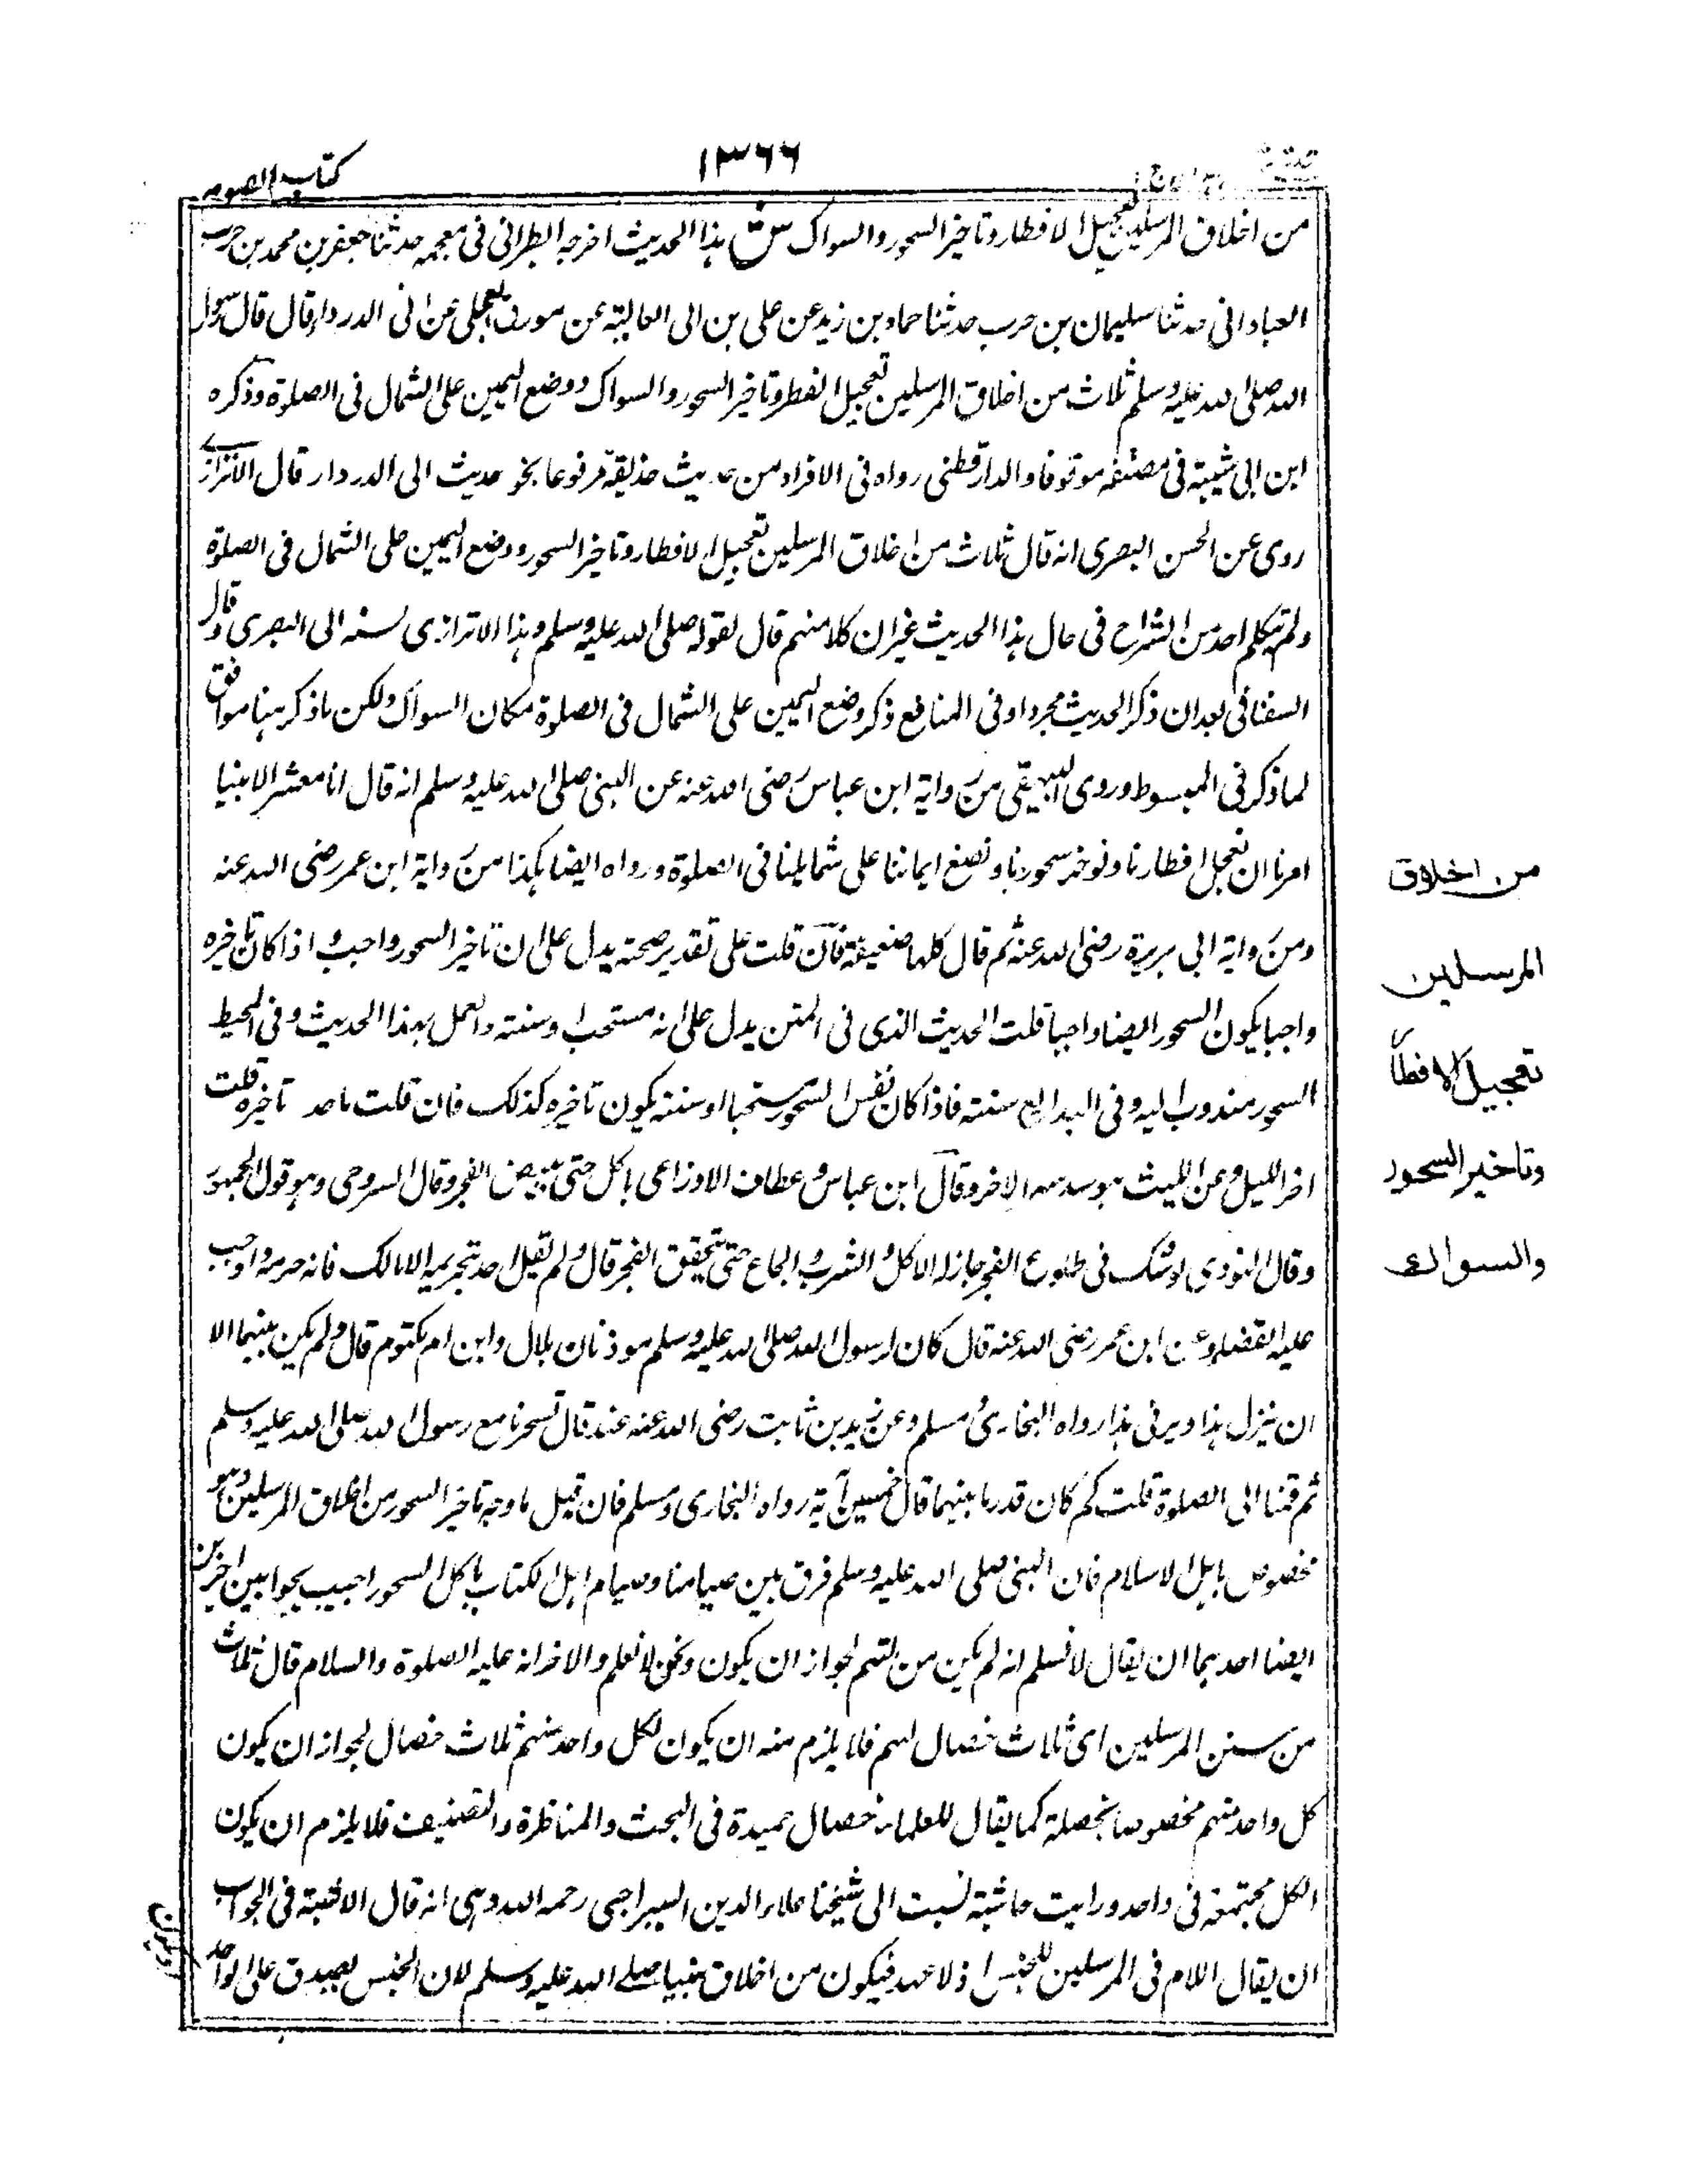 ١٣٦٦
كتاب الصوم
من اخلاق المرسلين تعجيل الافطار وتاخير السحور والسواك ش هذا الحديث اخرجه الطبرانى فى معجمه حدثنا جعفر بن محمد بن حرب
العبادانى حدثنا سليمان بن حرب حدثنا حماد بن زيد عن على بن ابى العالية عن مورق العجلى عن ابى الدرداء قال قال رسول
الله صلى الله عليه وسلم ثلاث من اخلاق المرسلين تعجيل الفطر وتاخير السحور والسواك ووضع اليمين على الشمال فى الصلوة وذكره
ابن ابى شيبة فى مصنفه موقوفا والدارقطنى رواه فى الافراد من حديث حذيفة مرفوعا بنحو حديث ابى الدرداء قال الاترازى
روى عن الحسن البصرى انه قال ثلاث من اخلاق المرسلين تعجيل الافطار وتاخير السحور ووضع اليمين على الشمال فى الصلوة
ولم يتكلم احد من الشراح فى حال هذا الحديث غير ان كلا منهم قال لقوله صلى الله عليه وسلم وهذا الاترازى نسبه الى البصرى وقال
السغناقى بعد ان ذكر الحديث مجردا وفى المنافع ذكر وضع اليمين على الشمال فى الصلوة مكان السواك ولكن ما ذكر هنا موافق
لما ذكر فى المبسوط وروى البيهقى من رواية ابن عباس رضى الله عنه عن النبى صلى الله عليه وسلم انه قال انا معشر الانبيا
امرنا ان نعجل افطارنا ونوخر سحورنا ونضع ايماننا على شمايلنا فى الصلوة ورواه ايضا هكذا من رواية ابن عمر رضى الله عنه
ومن رواية ابى هريرة رضى الله عنه ثم قال كلها ضعيفة فان قلت على تقدير صحته يدل على ان تاخير السحور واجب واذا كان تاخيره
واجبا يكون السحور ايضا واجبا قلت الحديث الذى فى المتن يدل على انه مستحب او سنته والعمل بهذا الحديث وفى المحيط
السحور مندوب اليه وفى البدايع سنته فاذا كان نفس السحور مستحبا او سنته يكون تاخيره كذلك فان قلت ما حد تاخيره قلت
اخر الليل وعن الليث هو سدسه الاخر وقال ابن عباس وعطاء والاوزاعى ياكل حتى يتبيض الفجر وقال السروجى وهو قول الجمهور
وقال النووى لو شك فى طلوع الفجر جاز له الاكل والشرب والجماع حتى يتحقق الفجر قال ولم يقل احد بتحريمه الا مالك فانه حرمه واوجب
عليه القضاء وعن ابن عمر رضى الله عنه قال كان لرسول الله صلى الله عليه وسلم موذنان بلال وابن ام مكتوم قال ولم يكن بينهما الا
ان ينزل هذا ويرقى هذا رواه البخارى ومسلم وعن زيد بن ثابت رضى الله عنه عند قال تسحرنا مع رسول الله صلى الله عليه وسلم
ثم قمنا الى الصلوة قلت كم كان قدر ما بينهما قال خمسين آية رواه البخارى ومسلم فان قيل ما وجه تاخير السحور من اخلاق المرسلين وهو
مخصوص باهل الاسلام فان النبى صلى الله عليه وسلم فرق بين صيامنا وصيام اهل الكتاب باكل السحور اجيب بجوابين اخرين
ايضا احدهما ان يقال لا نسلم انه لم يكن من سنتهم لجواز ان يكون ونحن لا نعلم والاخر انه عليه الصلوة والسلام قال ثلاث
من سنن المرسلين اى ثلاث خصال لهم فلا يلزم منه ان يكون لكل واحد منهم ثلاث خصال لجواز ان يكون
كل واحد منهم مخصوصا بخصلة كما يقال للعلماء خصال حميدة فى البحث والمناظرة والتصنيف فلا يلزم ان يكون
الكل مجتمعة فى واحد ورايت حاشية نسبت الى شيخنا علاء الدين السيرامى رحمه الله وهى انه قال الاشبه فى الجواب
ان يقال اللام فى المرسلين للجنس اذ لا عهد فيكون من اخلاق نبينا صلے الله عليه وسلم لان الجنس يصدق على الواحد
من اخلاق
المرسلين
تعجيل الافطار
وتاخير السحور
والسواك